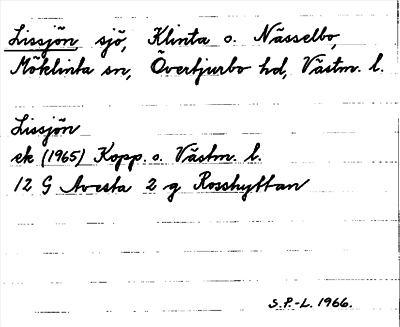 Lissjön sjö, Klinta o. Nässelbo,
Möklinta sn, Övertjurbo hd, Västm. l.
Lissjön
ek (1965) Kopp. o. Västm. l.
12 G Avesta 2 g Rosshyttan
S.P.-L. 1966.